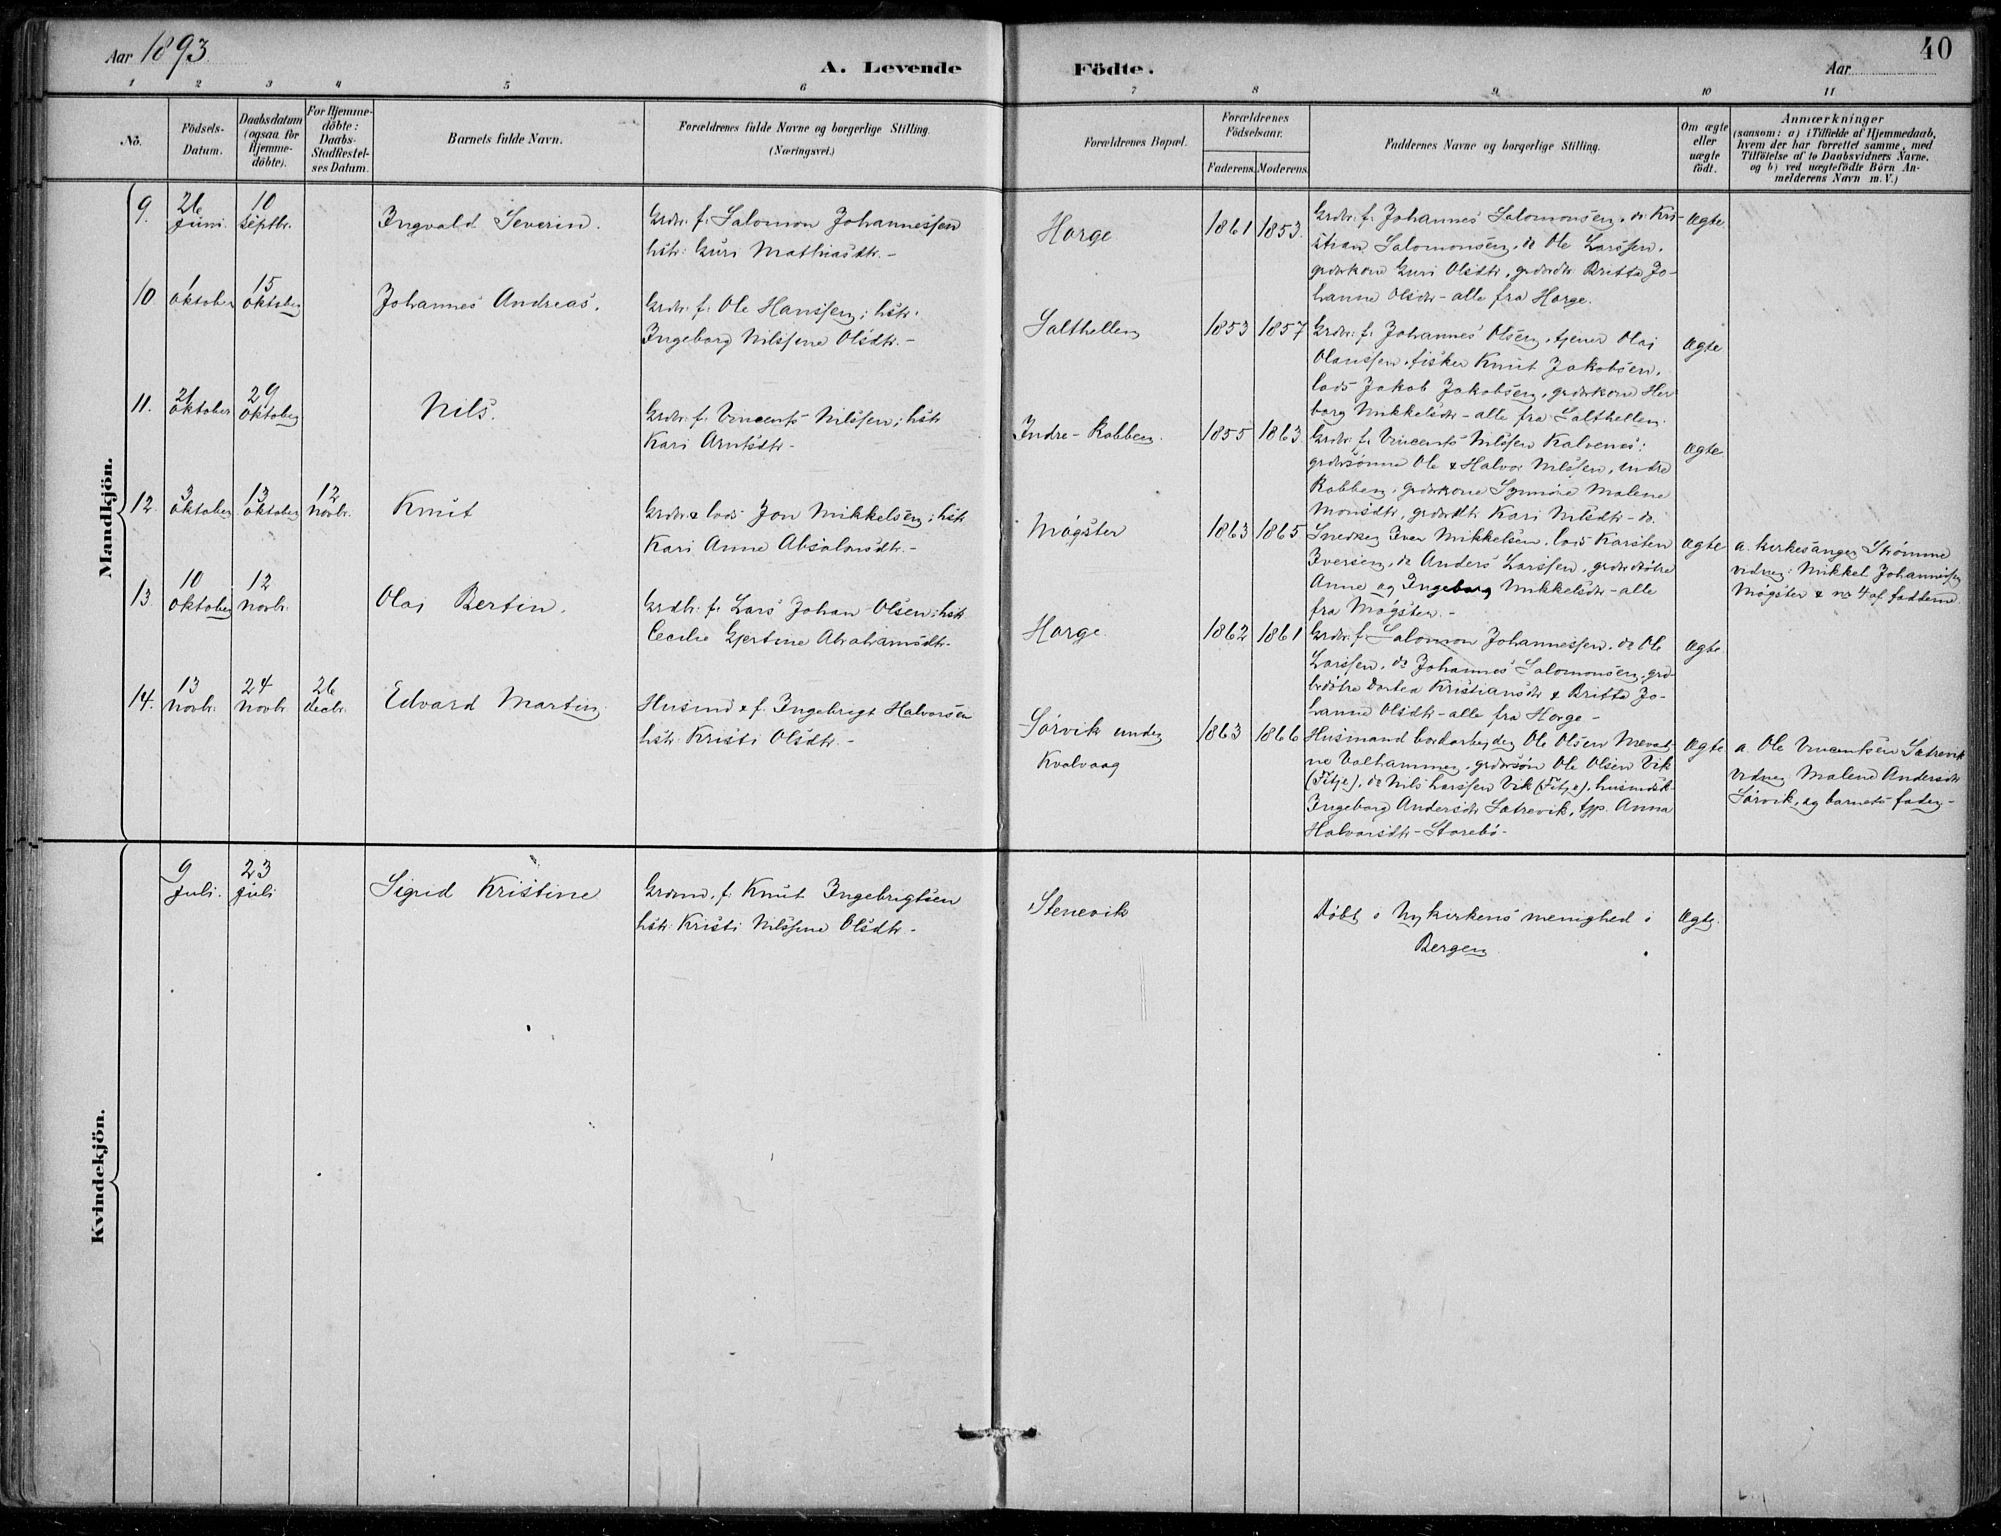 Aar 1893
A. Levende Födte.
Aar
40
1 2 3 4 5 6 7 8 9 10 11
No.
Födsels-Datum.
Daabsdatum (ogsaa for Hjemme-döbte).
For Hjemme-döbte: Daabs-Stadfæstel-ses Datum.
Barnets fulde Navn.
Forældrenes fulde Navne og borgerlige Stilling. (Næringsvei.)
Forældrenes Bopæl.
Forældrenes Födselsaar.
Faderens. Moderens.
Faddernes Navne og borgerlige Stilling.
Om ægte eller uægte födt.
Anmærkninger
(saasom: a) i Tilfælde af Hjemmedaab, hvem der har forrettet samme, med Tilföielse af to Daabsvidners Navne, og b) ved uægtefödte Börn Anmelderens Navn m. V.)
Mandkjön.
9. 26 Juni. 10 Septbr. Ingvald Severin. Grdbr. f. Salomon Johannessen
hstr: Guri Mathiasdtr. -
Horge 1861 1853.
Grdbr. f. Johannes Salomonsen, do Kri-
stian Salomonsen, do Ole Larssen,
grdbrkone Guri Olsdtr, grdbrdtr Britta Jo-
hanne Olsdtr - alle fra Horge.
Ægte
10. 1 oktober 15 oktober Johannes Andreas. Grdbr. f. Ole Hanssen; hstr.
Ingeborg Nilssine Olsdtr. -
Salthellen 1853 1857
Grdbr. f. Johannes Olsen, tjener Olai
Olaussen, fisker Knut Jakobsen,
lods Jakob Jakobsen, grdbrkone Her
borg Mikkelsdtr - alle fra Salthellen.
Ægte
11. 21 oktober 29 oktober Nils. Grdbr. f. Vincents Nilssen; hstr
Kari Arntsdtr -
Indre-Robben. 1855 1863
Grdbr. f. Vincents Nilssen Kalvenes:
grdbrsönne Ole & Halvor Nilssen, indre
Robben, grdbrkone Synnöve Malene
Monsdtr, grdbrdtr Kari Nilsdtr - do.
Ægte
12. 3 oktober 13 oktober 12 novbr. Knut Grdbr. & lods Jon Mikkelsen; hstr
Kari Anne Absalonsdtr. -
Mögster 1863 1865
Snedker Iver Mikkelsen, lods Karsten
Iversen, do Anders Larssen, grdbrdötre
Anne og Ingeborg Mikkelsdtr - alle
fra Mögster. -
Ægte
a. kirkesanger Strömme
vidner: Mikkel Johannessen
Mögster & no 4 af fadderne.
13. 10 oktober 12 novbr. Olai Bertin. Grdbr. f. Lars Johan Olsen; hstr
Cecilie Gjertine Abrahamsdtr. -
Horge 1862 1861
Grdbr. f. Salomon Johannessen, do Ole
Larssen, do Johannes Salomonsen, grd-
brdötre Dortea Kristiansdtr & Britta Jo-
hanne Olsdtr - alle fra Horge -
Ægte
14. 13 novbr. 24 novbr 26 decbr. Edvard Martin. Husmd & f. Ingebrigt Halvorsen
hstr. Kristi Olsdtr. -
Sörvik under
Kvalvaag
1863 1866
Husmand bordarbejder Ole Olsen
Valhammer, grdbrsön Ole Olsen Vik
(Fitje), do Nils Larssen Vik (Fitje),
Ingeborg Andersdtr Sætrevik, tjp. Anna
Halvorsdtr - Storebö -
Ægte
a. Ole Vincentsen Sætrevik
vidner Malene Andersdtr
Sörvik, og barnets fader -
Kvindekjön.
9 Juli. 23 juli Sigrid Kristine Grdmd. f. Knut Ingebrigtsen
hstr. Kristi Nilssine Olsdtr. -
Stenevik
Döbt i Nykirkens menighed i
Bergen.
Ægte.